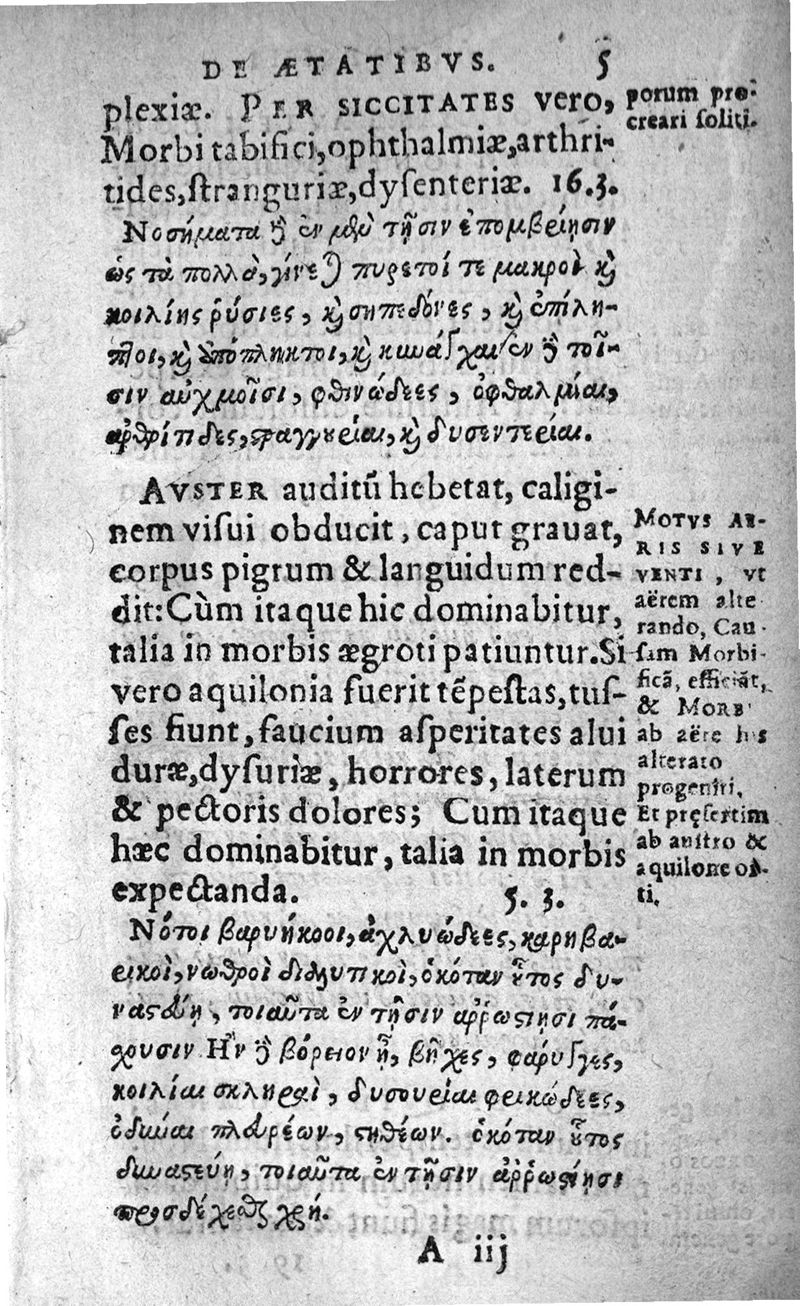 DE ÆTATIBVS. 5
plexiæ. PER SICCITATES vero,
Morbi tabifici, ophthalmiæ, arthri-
tides, ſtranguriæ, dyſenteriæ. 16.3.
Νοσήματα δὲ ἐν μὲν τῇσιν ἐπομβρίῃσιν
ὡς τὰ πολλὰ, γίνεται πυρετοί τε μακροὶ καὶ
κοιλίης ῥύσιες, καὶ σηπεδόνες, καὶ ἐπίλη-
πτοι, καὶ ἀπόπληκτοι, καὶ κυνάγχαι ἐν δὲ τοῖ-
σιν αὐχμοῖσι, φθινώδεες, ὀφθαλμίαι,
ἀρθρίτιδες, στραγγουρίαι, καὶ δυσεντερίαι.
AVSTER auditū hebetat, caligi-
nem viſui obducit, caput grauat,
corpus pigrum & languidum red-
dit: Cùm itaque hic dominabitur,
talia in morbis ægroti patiuntur. Si
vero aquilonia fuerit tẽpeſtas, tuſ-
ſes fiunt, faucium aſperitates alui
duræ, dyſuriæ, horrores, laterum
& pectoris dolores; Cum itaque
hæc dominabitur, talia in morbis
expectanda. 5. 3.
Νότοι βαρυήκοοι, ἀχλυώδεες, καρηβα-
ρικοὶ, νωθροὶ διαλυτικοὶ, ὁκόταν οὗτος δυ-
ναστεύῃ, τοιαῦτα ἐν τῇσιν ἀῤῥωστίῃσι πά-
χουσιν Ἢν δὲ βόρειον ᾖ, βῆχες, φάρυγγες,
κοιλίαι σκληραὶ, δυσουρίαι φρικώδεες,
ὀδύναι πλευρέων, στηθέων. ὁκόταν οὗτος
δυναστεύῃ, τοιαῦτα ἐν τῇσιν ἀῤῥωστίῃσι
προσδέχεσθαι χρή.
A iij
porum pro-
creari ſoliti.
MOTVS AE-
RIS SIVE
VENTI, vt
aërem alte
rando, Cau
ſam Morbi-
ficā, efficiāt,
& MORB
ab aëre his
alterato
progeniti,
Et pręſertim
ab auſtro &
aquilone or-
ti.